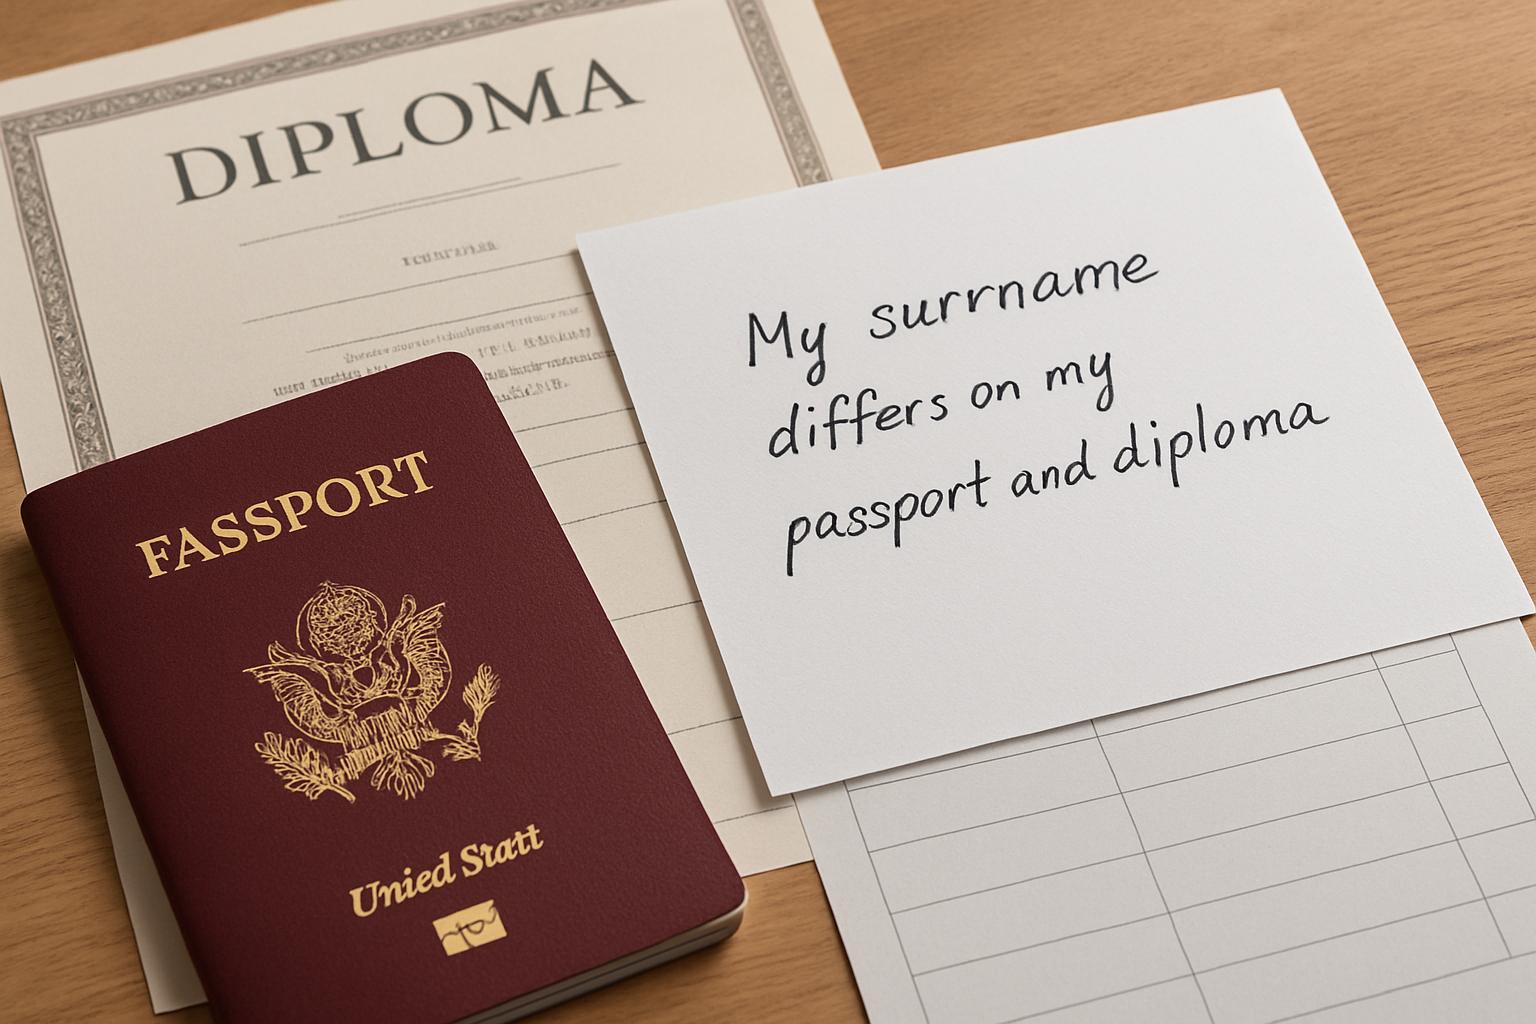 DIPLOMA
My surrname
differs on my
passport and diploma
FASSPORT
Unied Statt